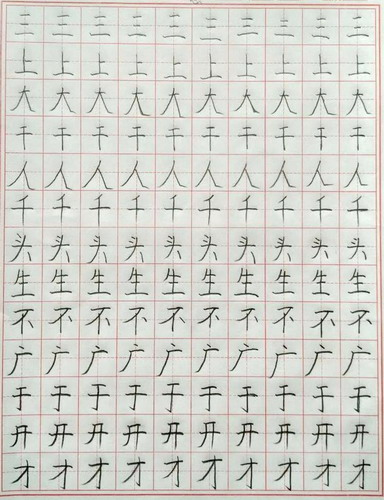 三三三三三三三三三三
上上上上上上上上上上
大大大大大大大大大大
干干干干干干干干干干
人人人人人人人人人人
千千千千千千千千千千
头头头头头头头头头头
生生生生生生生生生生
不不不不不不不不不不
广广广广广广广广广广
于于于于于于于于于于
开开开开开开开开开开
才才才才才才才才才才